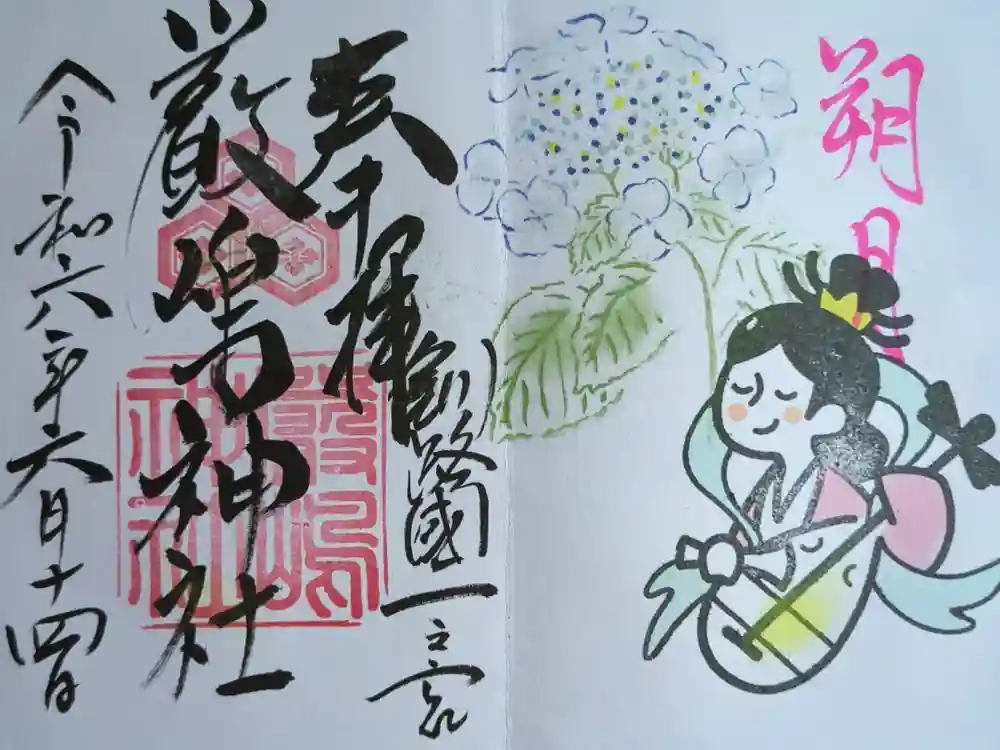 朔日
奉拝
釧路國一之宮
嚴嶋神社
嚴嶋神社
令和六年六月十四日